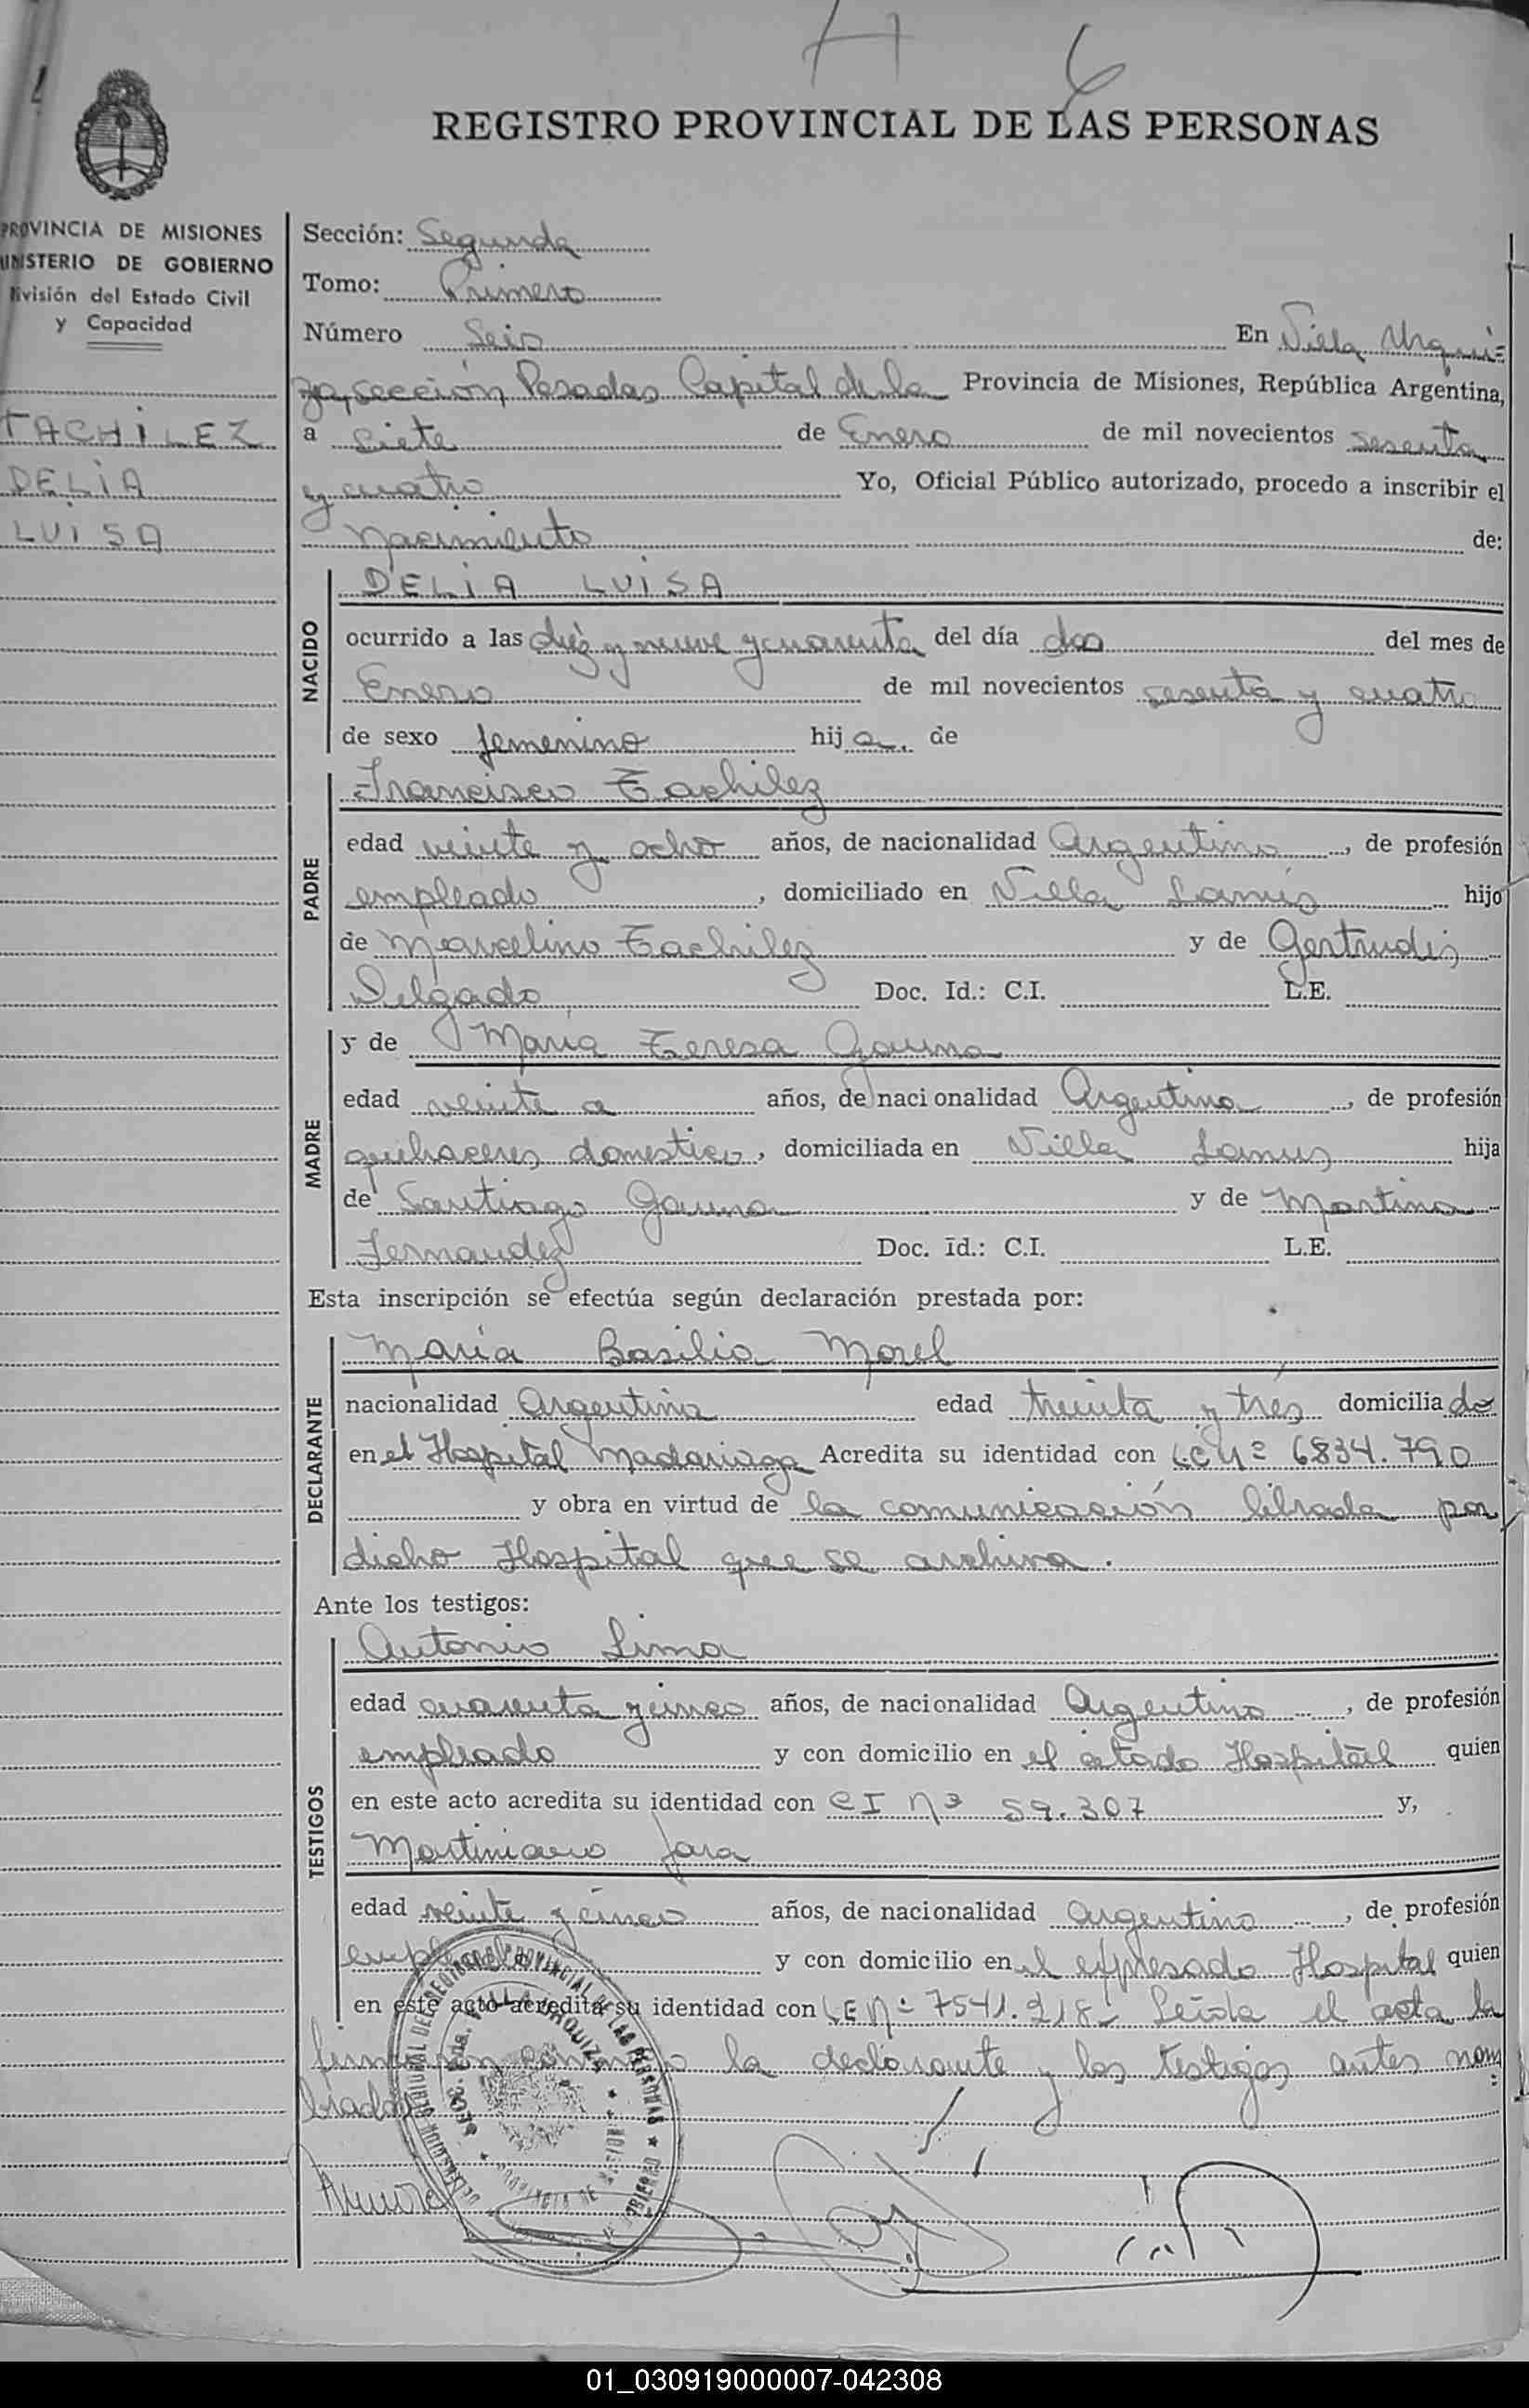 H 6
REGISTRO PROVINCIAL DE LAS PERSONAS
PROVINCIA DE MISIONES
MINISTERIO DE GOBIERNO
División del Estado Civil
y Capacidad
TACHILEZ
DELIA
LUISA
Sección: Segunda
Tomo: Primero
Número Seis En Villa Urqui=
za, sección Posadas Capital de la Provincia de Misiones, República Argentina,
a siete de Enero de mil novecientos sesenta
y cuatro Yo, Oficial Público autorizado, procedo a inscribir el
nacimiento de:
NACIDO
DELIA LUISA
ocurrido a las diez y nueve y cuarenta del día dos del mes de
Enero de mil novecientos sesenta y cuatro
de sexo femenino hija. de
PADRE
Francisco Tachilez
edad veinte y ocho años, de nacionalidad Argentino, de profesión
empleado, domiciliado en Villa Lanús hijo
de Marcelino Tachilez y de Gertrudis
Delgado Doc. Id.: C.I. L.E.
MADRE
y de María Teresa Gauna
edad veinte a años, de nacionalidad Argentina, de profesión
quehaceres domestico, domiciliada en Villa Lanus hija
de Santiago Gauna y de Martina
Fernandez Doc. id.: C.I. L.E.
Esta inscripción se efectúa según declaración prestada por:
DECLARANTE
María Basilia Morel
nacionalidad Argentina edad treinta y tres domiciliado
en el Hospital Madariaga Acredita su identidad con LC Nº 6834.790
y obra en virtud de la comunicación librada por
dicho Hospital que se archiva.
Ante los testigos:
TESTIGOS
Antonio Lima
edad cuarenta y cinco años, de nacionalidad Argentino, de profesión
empleado y con domicilio en el citado Hospital quien
en este acto acredita su identidad con CI Nº 59.307 y,
Martiniano Jara
edad veinte y cinco años, de nacionalidad Argentino, de profesión
empleado y con domicilio en el expresado Hospital quien
en este acto acredita su identidad con LE Nº 7541.218- Leída el acta la
firmaron conmigo la declarante y los testigos antes nom=
brados
01_030919000007-042308